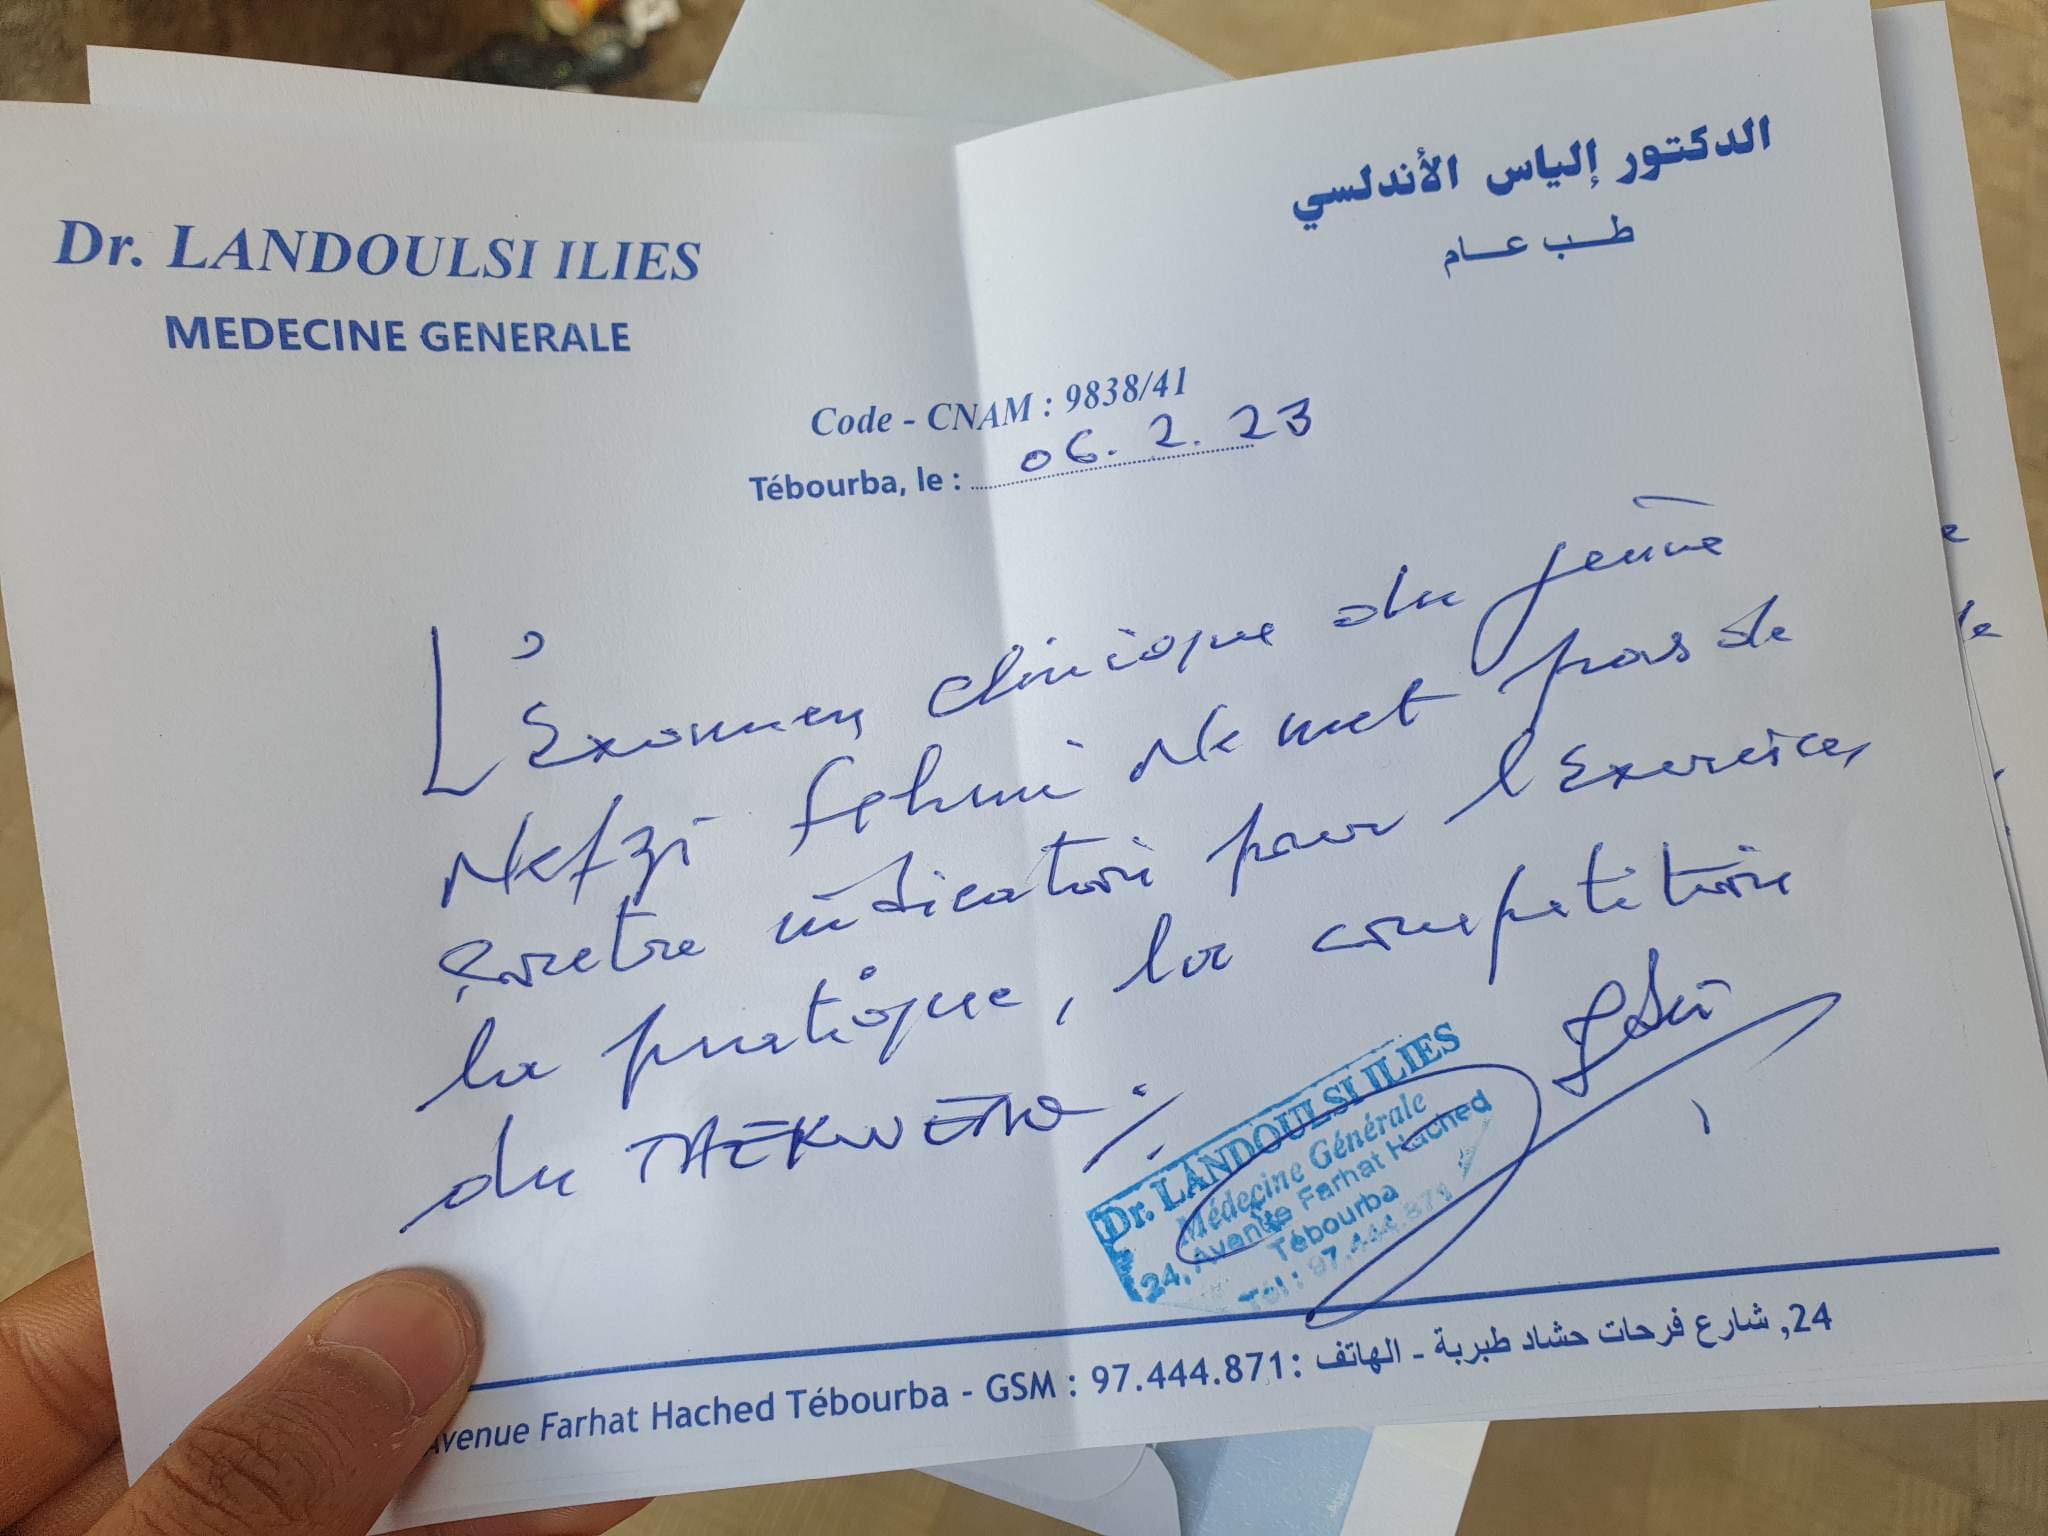 Dr. LANDOULSI ILIES
MEDECINE GENERALE
الدكتور إلياس الأندلسي
طب عام
Code - CNAM : 9838/41
Tébourba, le : 06.2.23
L'Examen clinique du jeune
Nefzi Fehmi Ne met pas de
contre indication pour l'Exercice,
la pratique, la competition
du TAEKWENDO
Dr. LANDOULSI ILIES
Médecine Générale
24, Avenue Farhat Hached
Tébourba
Tél : 97.444.871
Avenue Farhat Hached Tébourba - GSM : 97.444.871 : 24, شارع فرحات حشاد طبربة - الهاتف